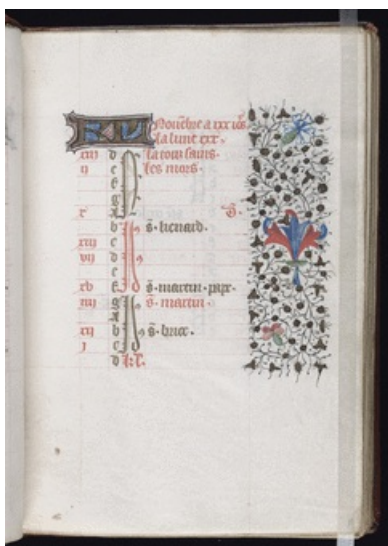 KL Nouēbre a xxx io's.
La lune xxx.
xiii d la tous sains.
ii e les mors.
f
g
x A
b s̄. lienard.
xviii c
vii d
e
xv f s̄. martin pape.
iiii g s̄. martin.
A
xii b s̄. brice.
i c
d kl.